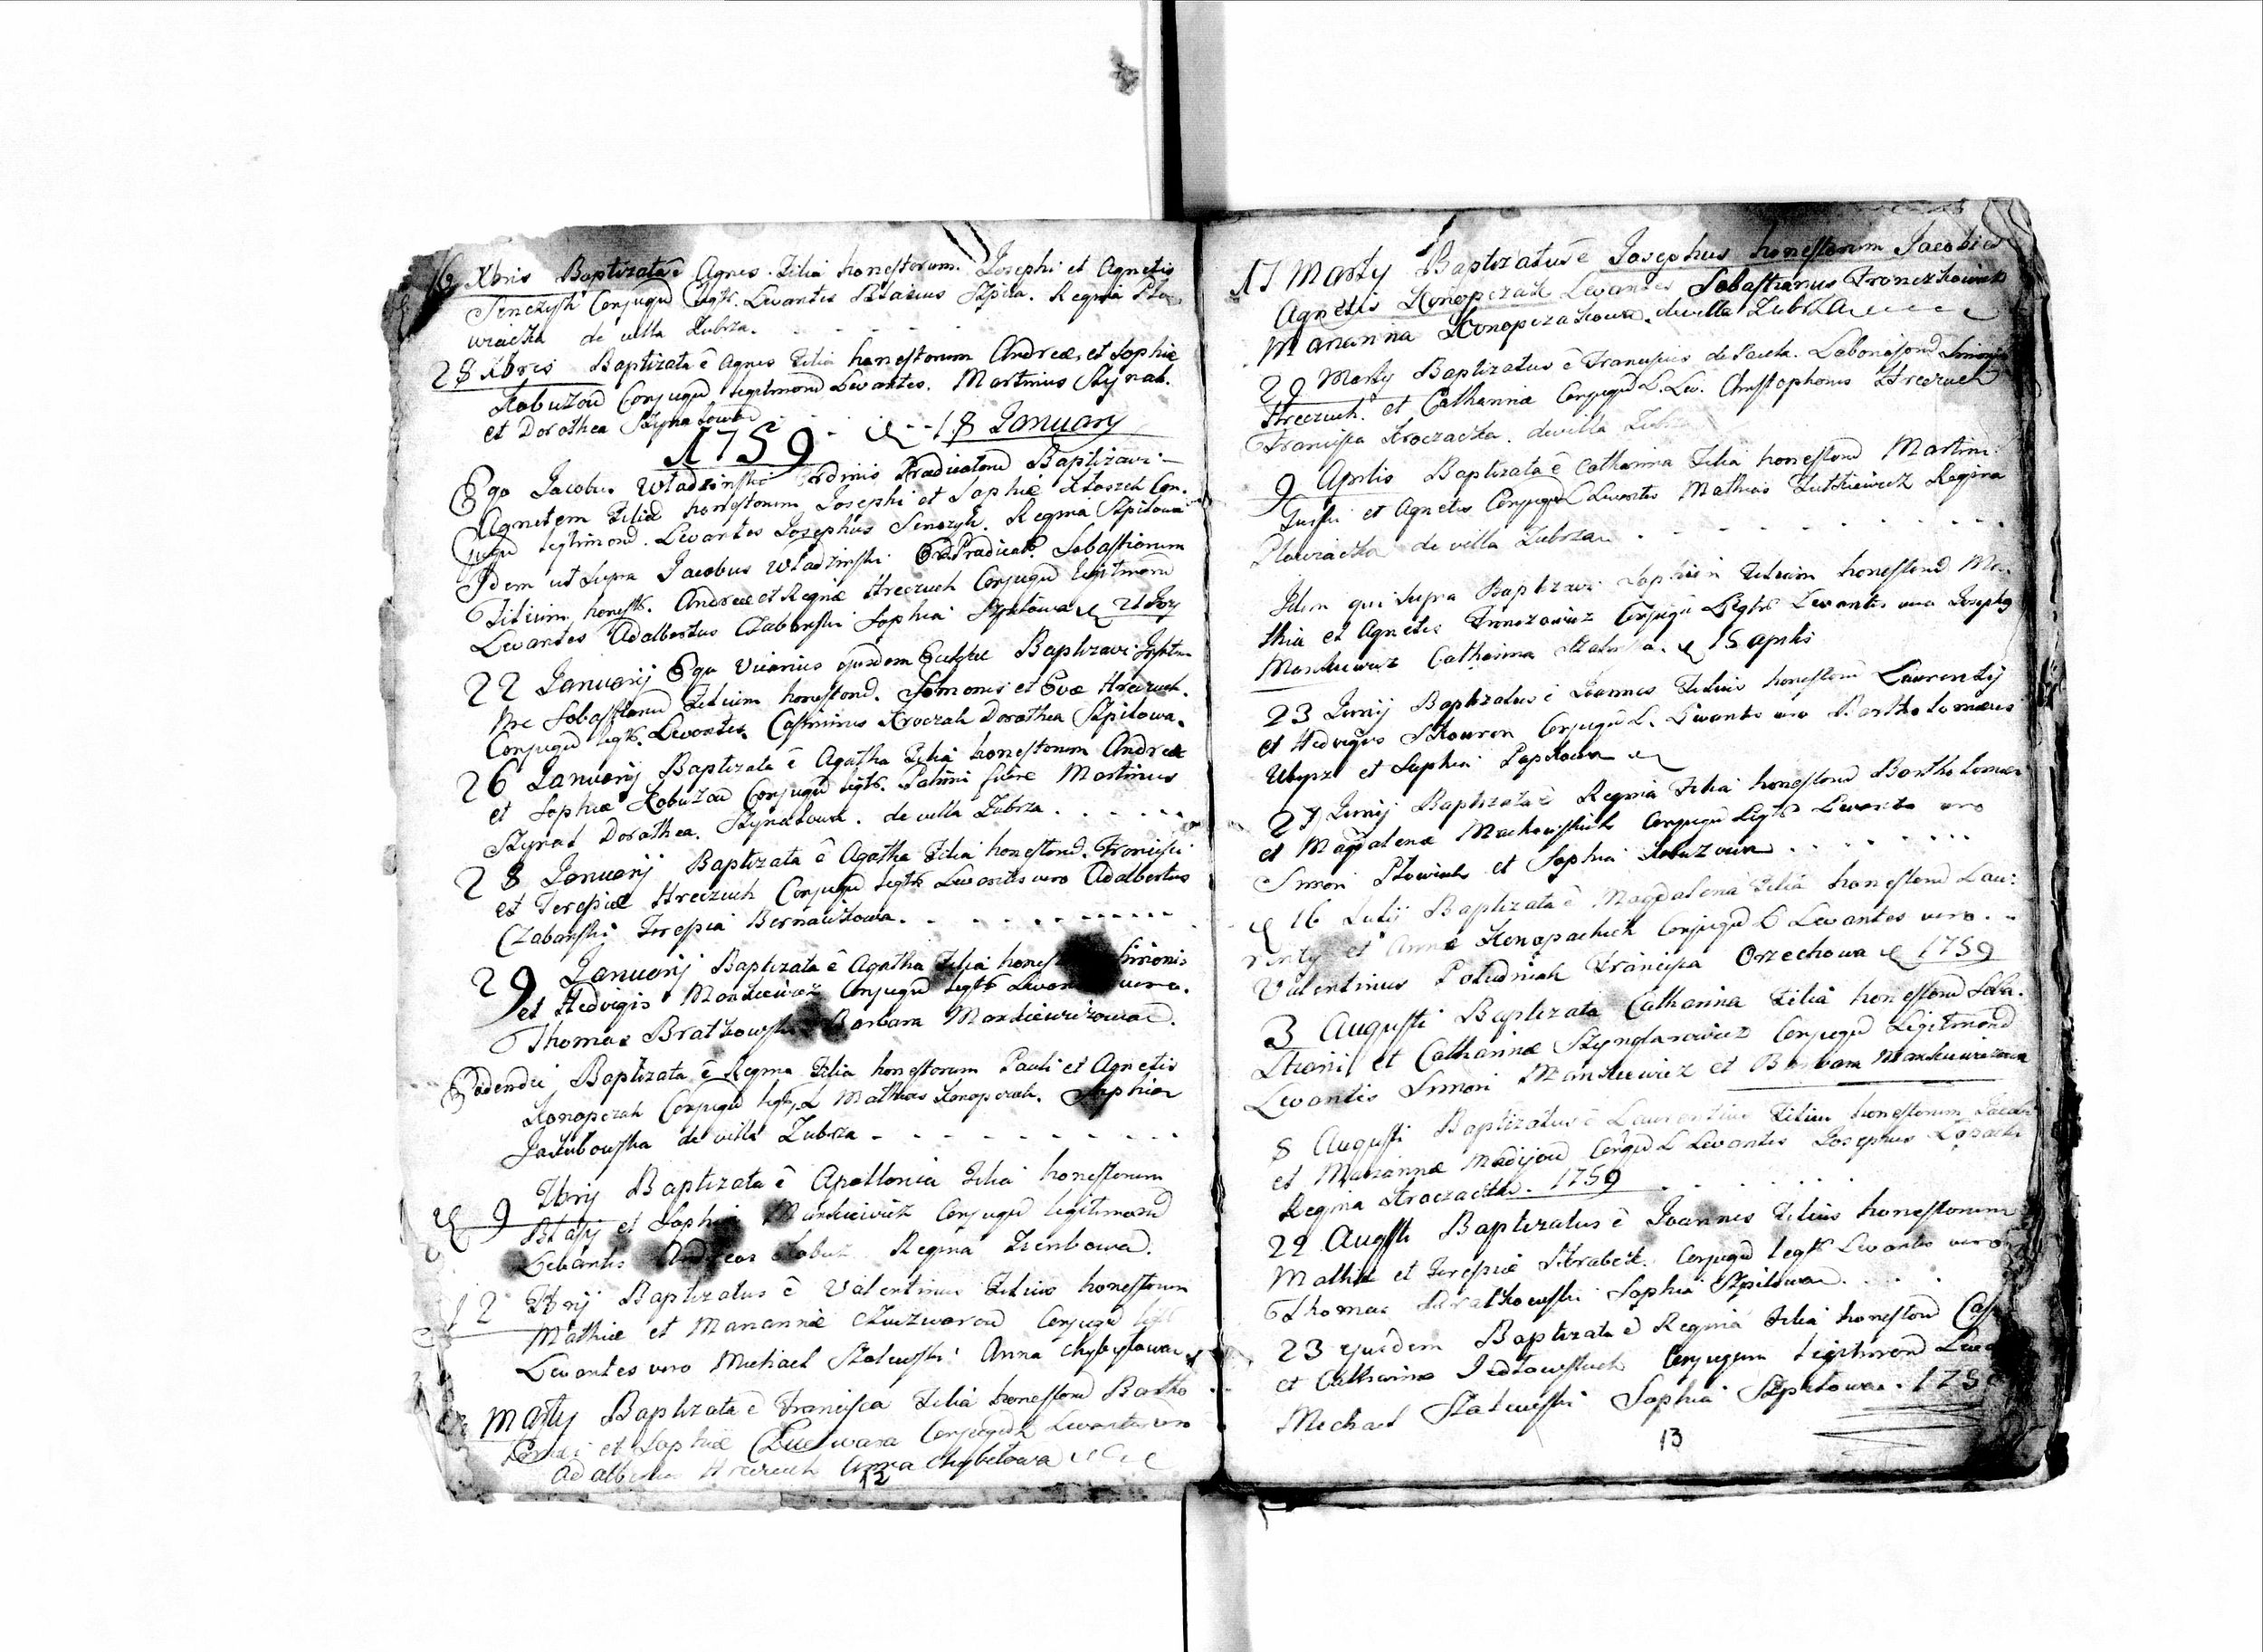 16 Xbris Baptizata ē Agnes Filia honestorum Josephi et Agnetis
Senczyk Conjugū Legts. Levantes Blasius Szpila. Regina Plo
wiaczka de villa Zubrza.
28 Xbris Baptizata ē Agnes Filia honestorum Andreæ, et Sophiæ
Kobuzów Conjugū legitimorū Levantes. Martinus Szynal.
et Dorothea Szynalowa
1759 18 January
Ego Jacobus Wladzinski Ordinis Prædicatorū Baptizavi
Agnetem Filiā honestorum Josephi et Sophiæ Con-
jugū legitimorū. Levantes Josephus Senczyk. Regina Szpilowa
Idem ut Supra Jacobus Wladzinski Ord Prædicat. Sebastianum
Filium honests. Andreæ et Reginæ Hreczuch Conjugū legitimorū
Levantes Adalbertus Czabanski Sophia 21 Jan
22 Januarij Ego Vicarius ejusdem Ecclesiæ Baptizavi
Sebastianū Filium honestorū. Simonis et Evæ Hreczuch.
Conjugū legts. Levantes. Casimirus Kroczak Dorothea Szpilowa.
26 Januarij Baptizata ē Agatha Filia honestorum Andreæ
et Sophiæ Kobuzów Conjugū legts. Patrini fuere Martinus
Szynal Dorothea. Szynalowa. de villa Zubrza.
28 Januarij Baptizata ē Agatha Filia honestorū. Francisci
et Teresiæ Hreczuch Conjugū legts Levantes vero Adalbertus
Czabanski Teresia Bernaczkowa.
29 Januarij Baptizata ē Agatha Filia Simonis
et Hedvigis Mankiewicz Conjugū legts vero.
Thomas Bratkowski Barbara Mankiewiczowa.
Eadendie Baptizata ē Regina Filia honestorum Pauli et Agnetis
Konopczak Conjugū legts L Mathias Konopczak. Sophia
Jakubowska de villa Zubrza
9 Fbrij Baptizata ē Apollonia Filia honestorum
Blasij et Sophiæ Mankiewicz Conjugū legitimorū
Levantes Andreas Kobuz Regina Ziembowa.
12 Fbrij Baptizatus ē Valentinus Filius honestorum
Mathiæ et Mariannæ Conjugū
Levantes vero Michael Stalewski Anna Chybylowa
Martij Baptizata ē Francisca Filia honestorū Bartho
et Sophiæ Conjugū L Levantes vero
Adalbertus Hreczuch Anna Chybelowa
12
17 Martij Baptizatus ē Josephus honestorum Jacobi et
Agnetis Konopczak Levantes Sebastianus Fronczkowicz
Marianna Konopczakowa. de villa Zubrza
29 Martij Baptizatus ē Franciscus de Paula. Laboriosorū Simonis
Hreczuch. et Catharinæ Conjugū L. Lev. Christophorus Hreczuch
Francisca Kroczaczka. de villa Zubrza
9 Aprilis Baptizata ē Catharina Filia honestorū Martini
et Agnetis Conjugū L Levantes Mathias Lutkiewicz Regina
Plowiaczka de villa Zubrza
Idem qui Supra Baptizavi Sophiam Filiam honestorū Ma
thiæ et Agnetis Fronczowicz Conjugū Legts Levantes vero Josephus
Mankiewicz Catharina 15 Aprilis
23 Junij Baptizatus ē Joannes Filius honestorū Laurentij
et Hedvigis Skowron Conjugū L. Levantes vero Bartholomæus
et Sophia
27 Junij Baptizata ē Regina Filia honestorū Bartholomæi
et Magdalenæ Conjugū Legts Levantes vero
Simon Plowiak et Sophia Kobuzowa
16 Julij Baptizata ē Magdalena Filia honestorū Lau:
rentij et Annæ Konopackich Conjugū L Levantes vero.
Valentinus Poludniak Francisca Orzechowa 1759
3 Augusti Baptizata Catharina Filia honestorū Seba.
stiani et Catharinæ Szynglarowicz Conjugū Legitimorū
Levantes Simon Mankiewicz et Barbara Mankiewiczowa
8 Augusti Baptizatus ē Laurentius Filius honestorum Jacobi
et Mariannæ Madijow Conjugū L Levantes Josephus
Regina Kroczaczka. 1759
22 Augusti Baptizatus ē Joannes Filius honestorum
Mathiæ et Teresiæ Hrabek. Conjugū legts Levantes vero
Thomas Bratkowski Sophia Szpilowa
23 ejusdem Baptizata ē Regina Filia honestorū
et Catharinæ Conjugum Legitimorū
Michael Stalewski Sophia Szpilowa. 1759
13